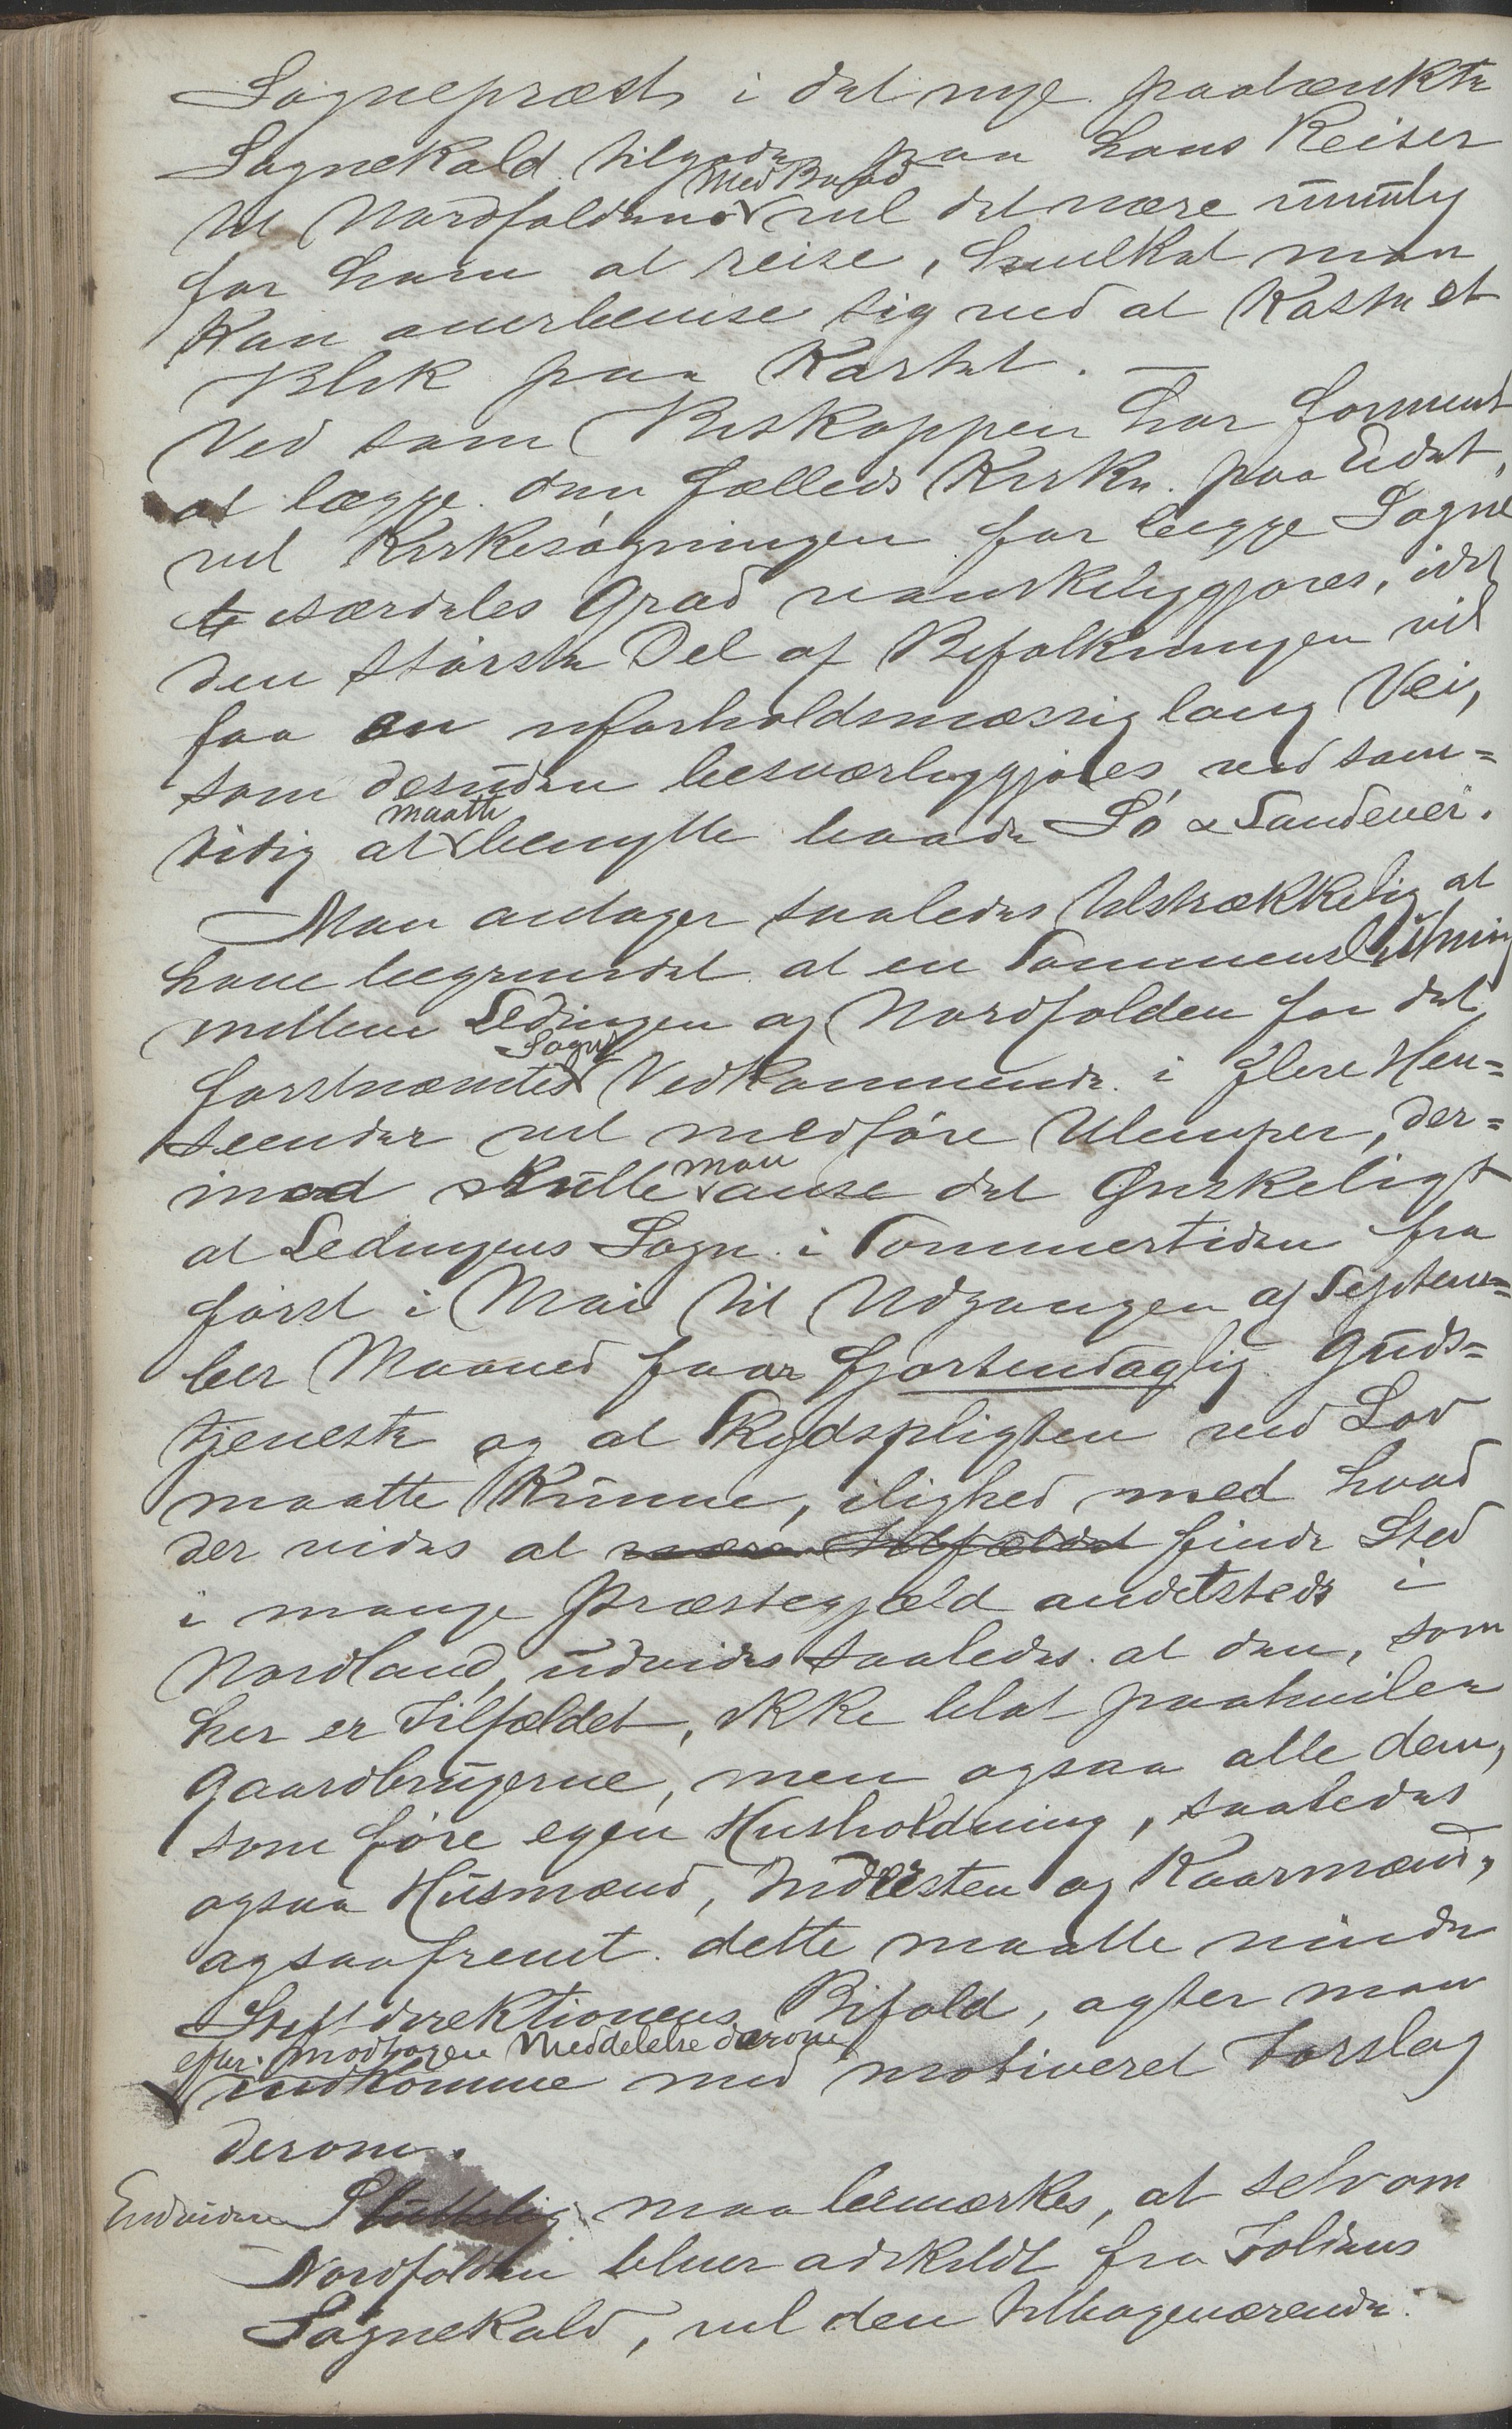 Sognepræst i det nye paatænkte
Sognekald tilgode paa hans Reiser
Med Baad
til Nordfoldens vil det være umulig
for ham at reise, hvilket man
kan overbevise sig ved at kaste et
Blik paa Kartet. —
Ved som Biskoppen har forment
at lægge den fælleds Kirke paa Eidet,
vil Kirkesøgningen for begge Sogne
særdeles Grad vanskeliggjøres, idet
den største Del af Befolkningen vil
faa en uforholdsmæssig lang Vei,
som desuden besværliggjøres ved sam=
maatte
tidig at benytte baade Sø & Landevei.
Man antager saaledes tilstrækkelig at
have begrundet at en Sammenslutning
mellem Ledingen og Nordfolden for det
Sogns
førstnæmtes Vedkommende i flere Hen=
seender vil medføre Ulemper, der=
man
imod skulle anse det Ønskeligt
at Ledingens Sogn i Sommertiden fra
først i Mai til Udgangen af Septem=
ber Maaned faar fjortendaglig Guds=
tjeneste og at Skydspligten ved Lov
maatte kunne, ilighed med hvad
der vides at være Tilfældet finde Sted
i mange Præstegjæld andetsteds i
Nordland, udvides saaledes at den, som
her er Tilfældet, ikke blot paahviler
Gaardbrugerne, men ogsaa alle dem,
som føre egen Husholdning, saaledes
ogsaa Husmænd, Inderster og Kaarmænd,
og saafremt dette maatte vinde
Stiftdirektionens Bifald, agter man
efter modtagen Meddelelse derom
indkomme med motiveret Forslag
derom.
Endvidere Sluttelig maa bemærkes, at selv om
Nordfolden bliver adskildt fra Foldens
Sognekald, vil den tilbageværende